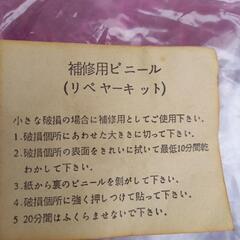 補修用ビニール
(リペヤーキット)
小さな破損の場合に補修用としてご使用下さい。
1.破損個所にあわせた大きさに切って下さい。
2.破損個所の表面をきれいに拭いて最低10分間乾
わかして下さい。
3.紙から裏のビニールを剝がして下さい。
4.破損個所に強く押しつけて貼って下さい。
5 20分間はふくらませないで下さい。